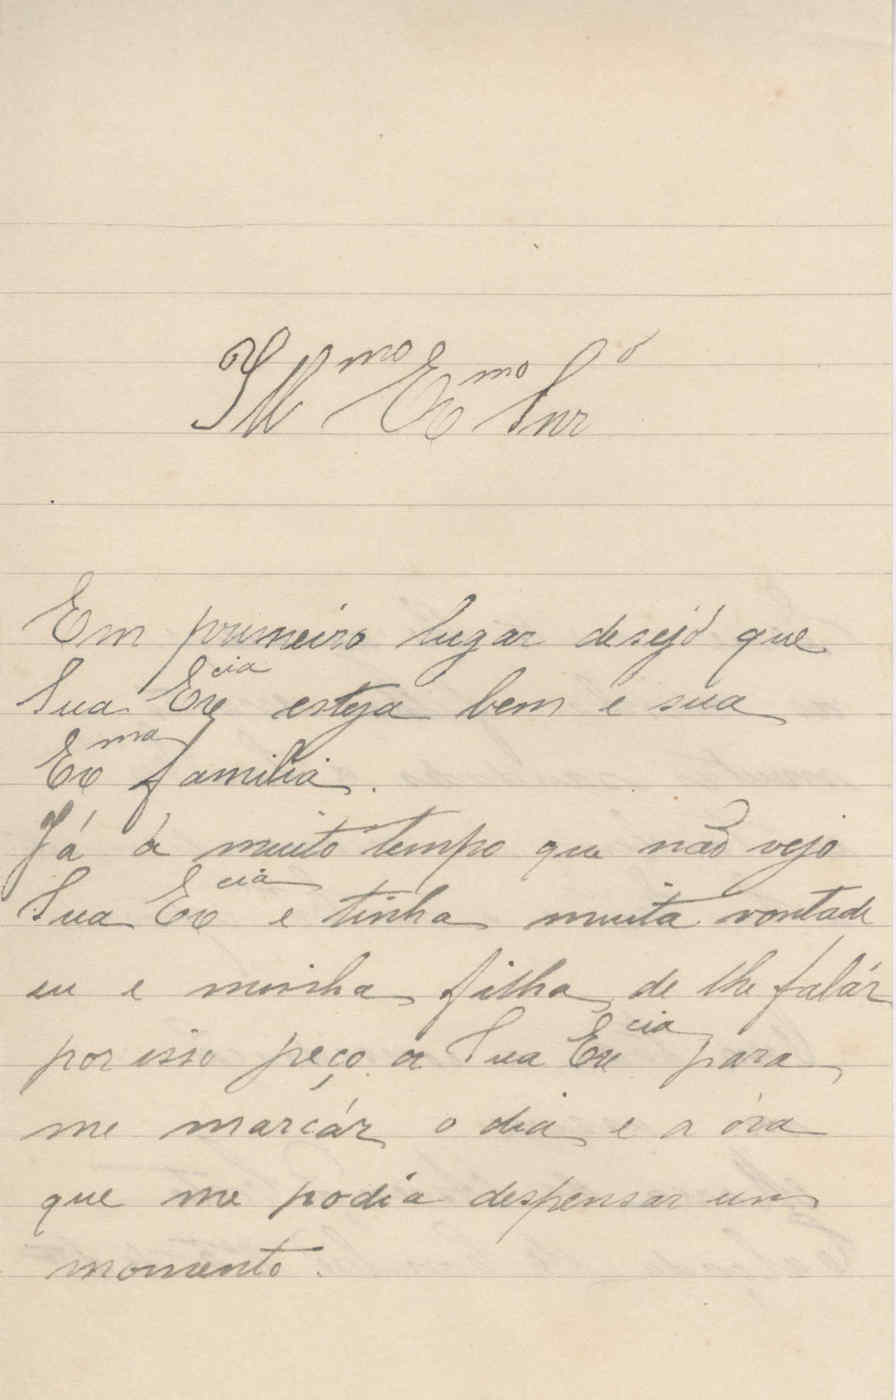 Ill^mo Ex^mo Snr^o
Em primeiro lugar desejó que
Sua Ex^cia esteja bem e sua
Ex^ma familia.
Já á muito tempo que não vejo
Sua Ex^cia e tinha muita vontade
eu e minha filha de lhe falár
por isso peço a Sua Ex^cia para
me marcár o dia e a óra
que me podia despensar um
momento.